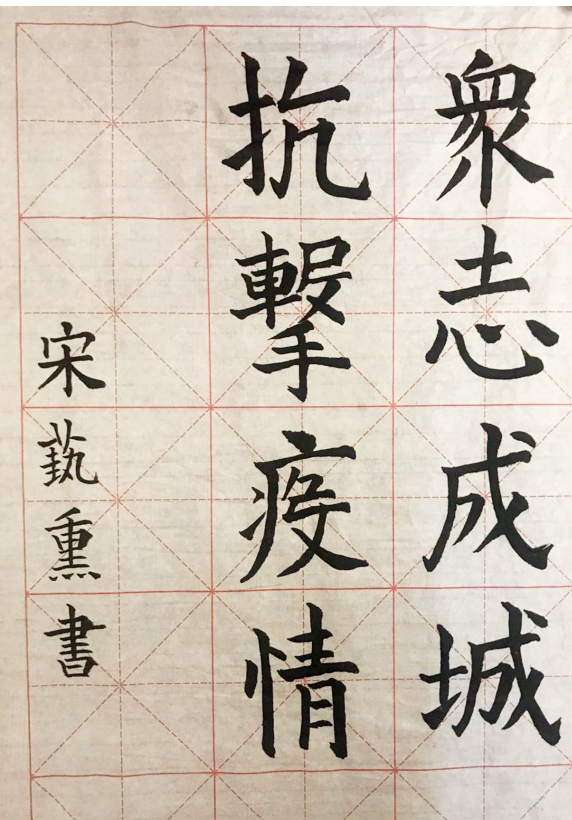 衆志成城
抗擊疫情
宋蓺熏書